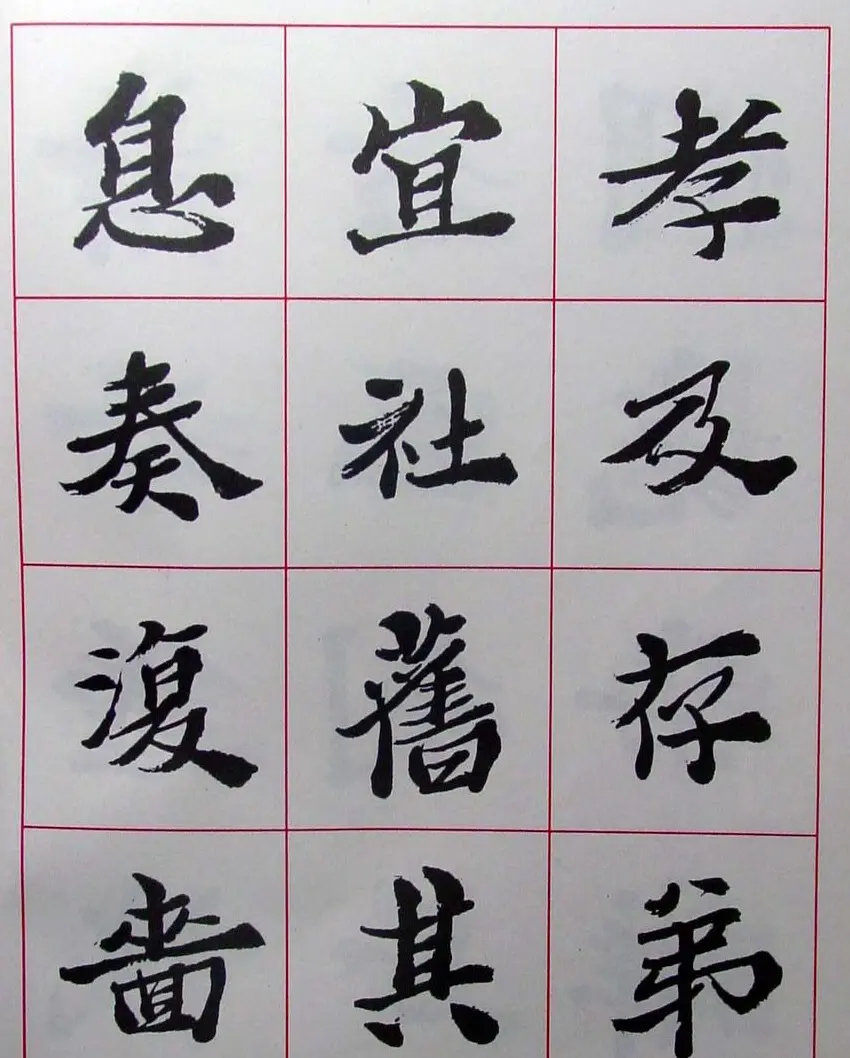 孝及存弟
宜社舊其
息奏復嗇